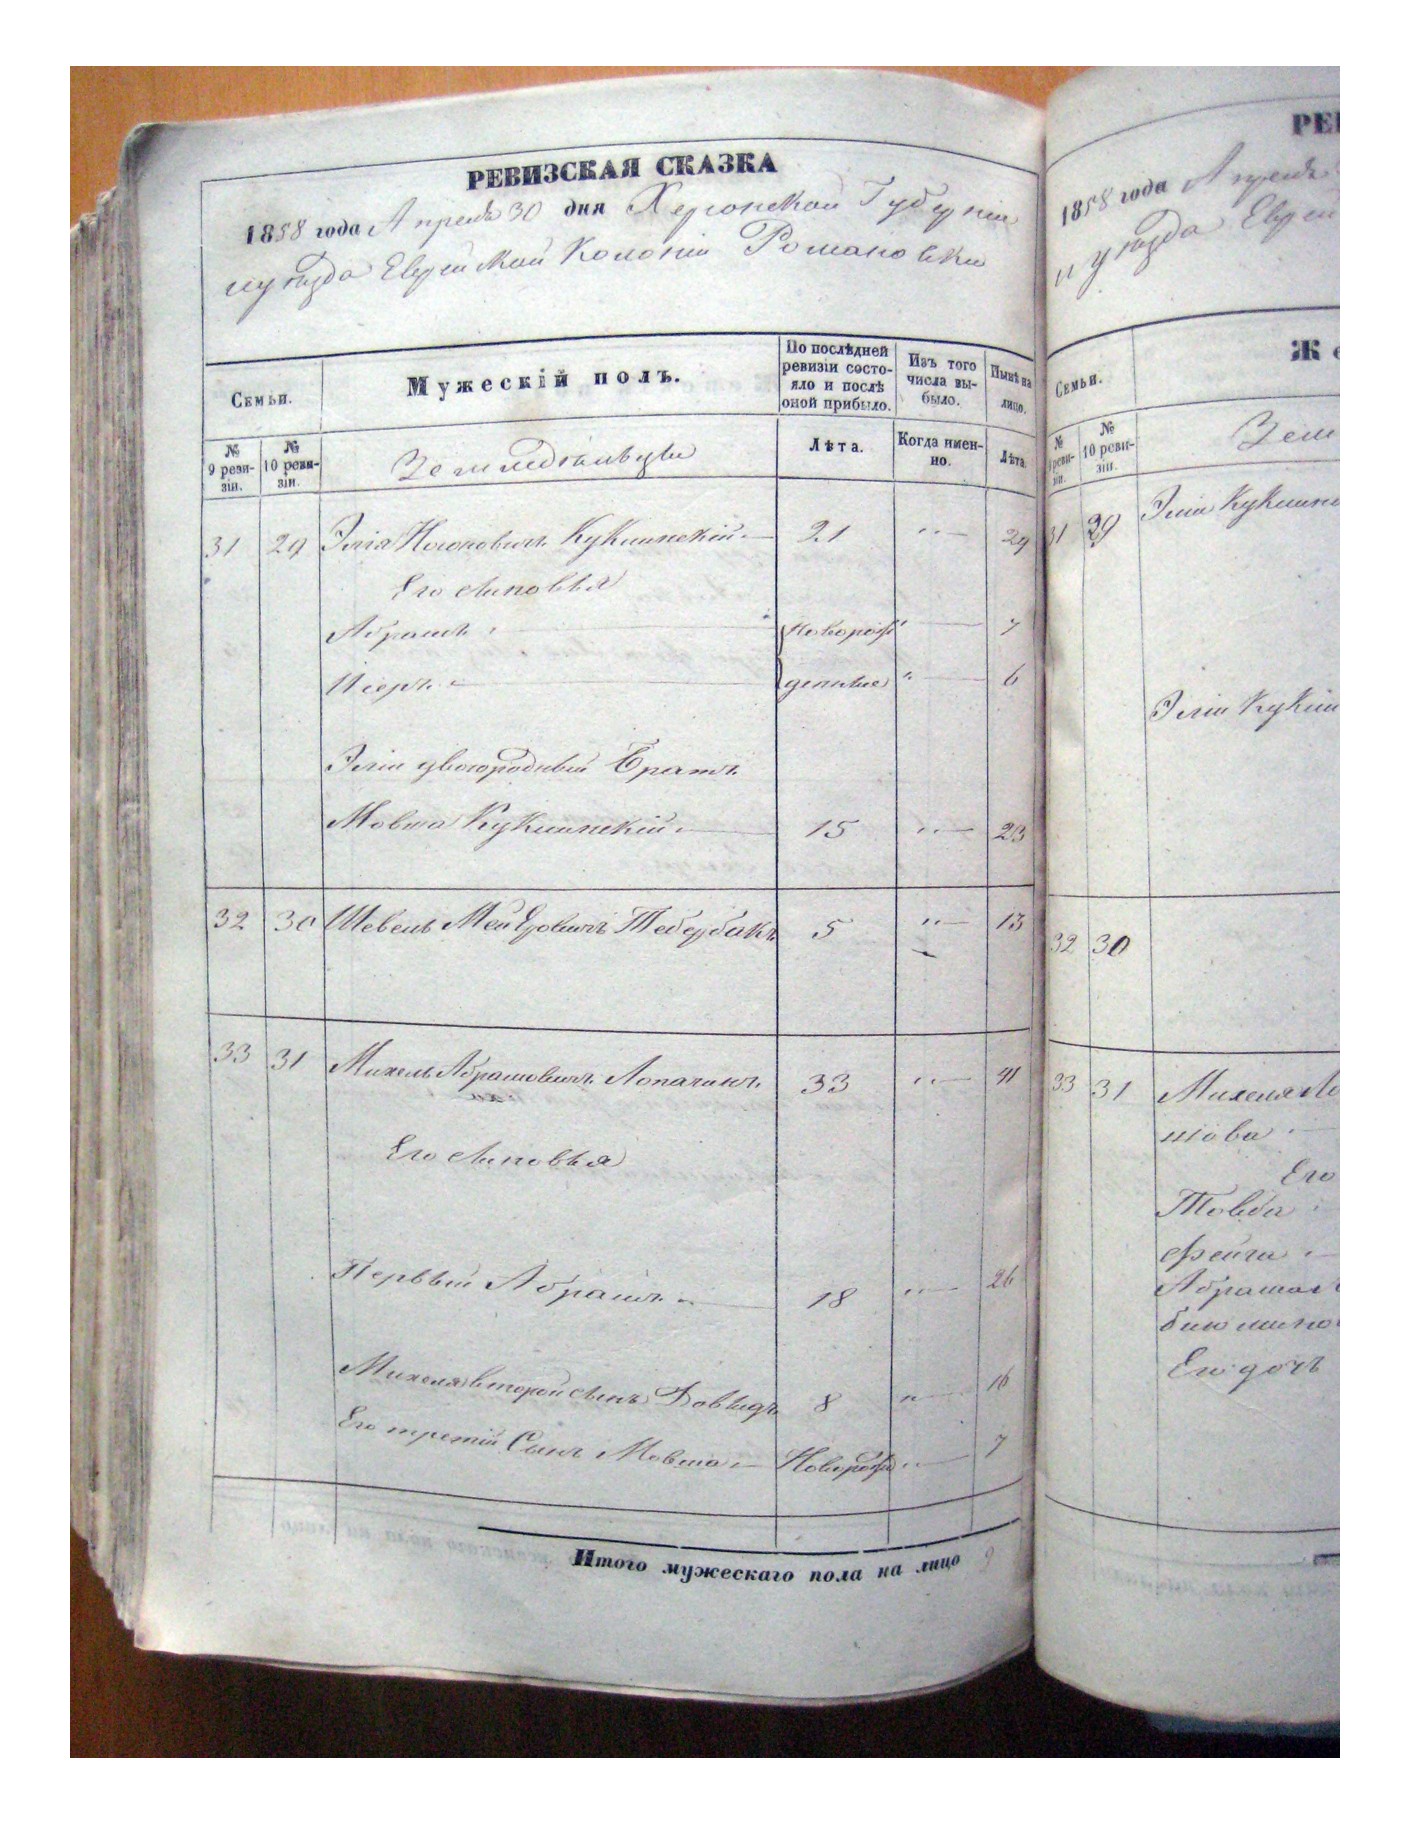 РЕВИЗСКАЯ СКАЗКА
1858 года Апреля 30 дня Херсонской Губерніи
и уѣзда Еврейской Колоніи Романовки
Семьи.
Мужескій полъ.
По послѣдней ревизіи состояло и послѣ оной прибыло.
Изъ того числа выбыло.
Нынѣ на лицо.
№ 9 ревизіи.
№ 10 ревизіи.
Земледѣльцы
Лѣта.
Когда именно.
Лѣта.
31 29 Элія Кукшинскій 21 29
Его сыновья
Абрамъ Новорож 7
денные 6
Эліи двоюродный братъ
Мовша Кукшинскій 15 23
32 30 Шевель Мейеровичъ 5 13
33 31 Михель Абрамовичъ Лопатинъ 33 41
Его сыновья
Первый Абрамъ 18 26
Михеля второй сынъ Довыдъ 8 16
Его третій Сынъ Мовша Новорож 7
Итого мужескаго пола на лицо 9
РЕВ
1858 года Апрель
и уѣзда Еврей
Семьи.
Ж е
№ 9 ревизіи.
№ 10 ревизіи.
Зем
31 29
Эліи Кук
32 30
33 31 Михеля Ло
Его
Товба
Фейга
Абрама
Его дочь